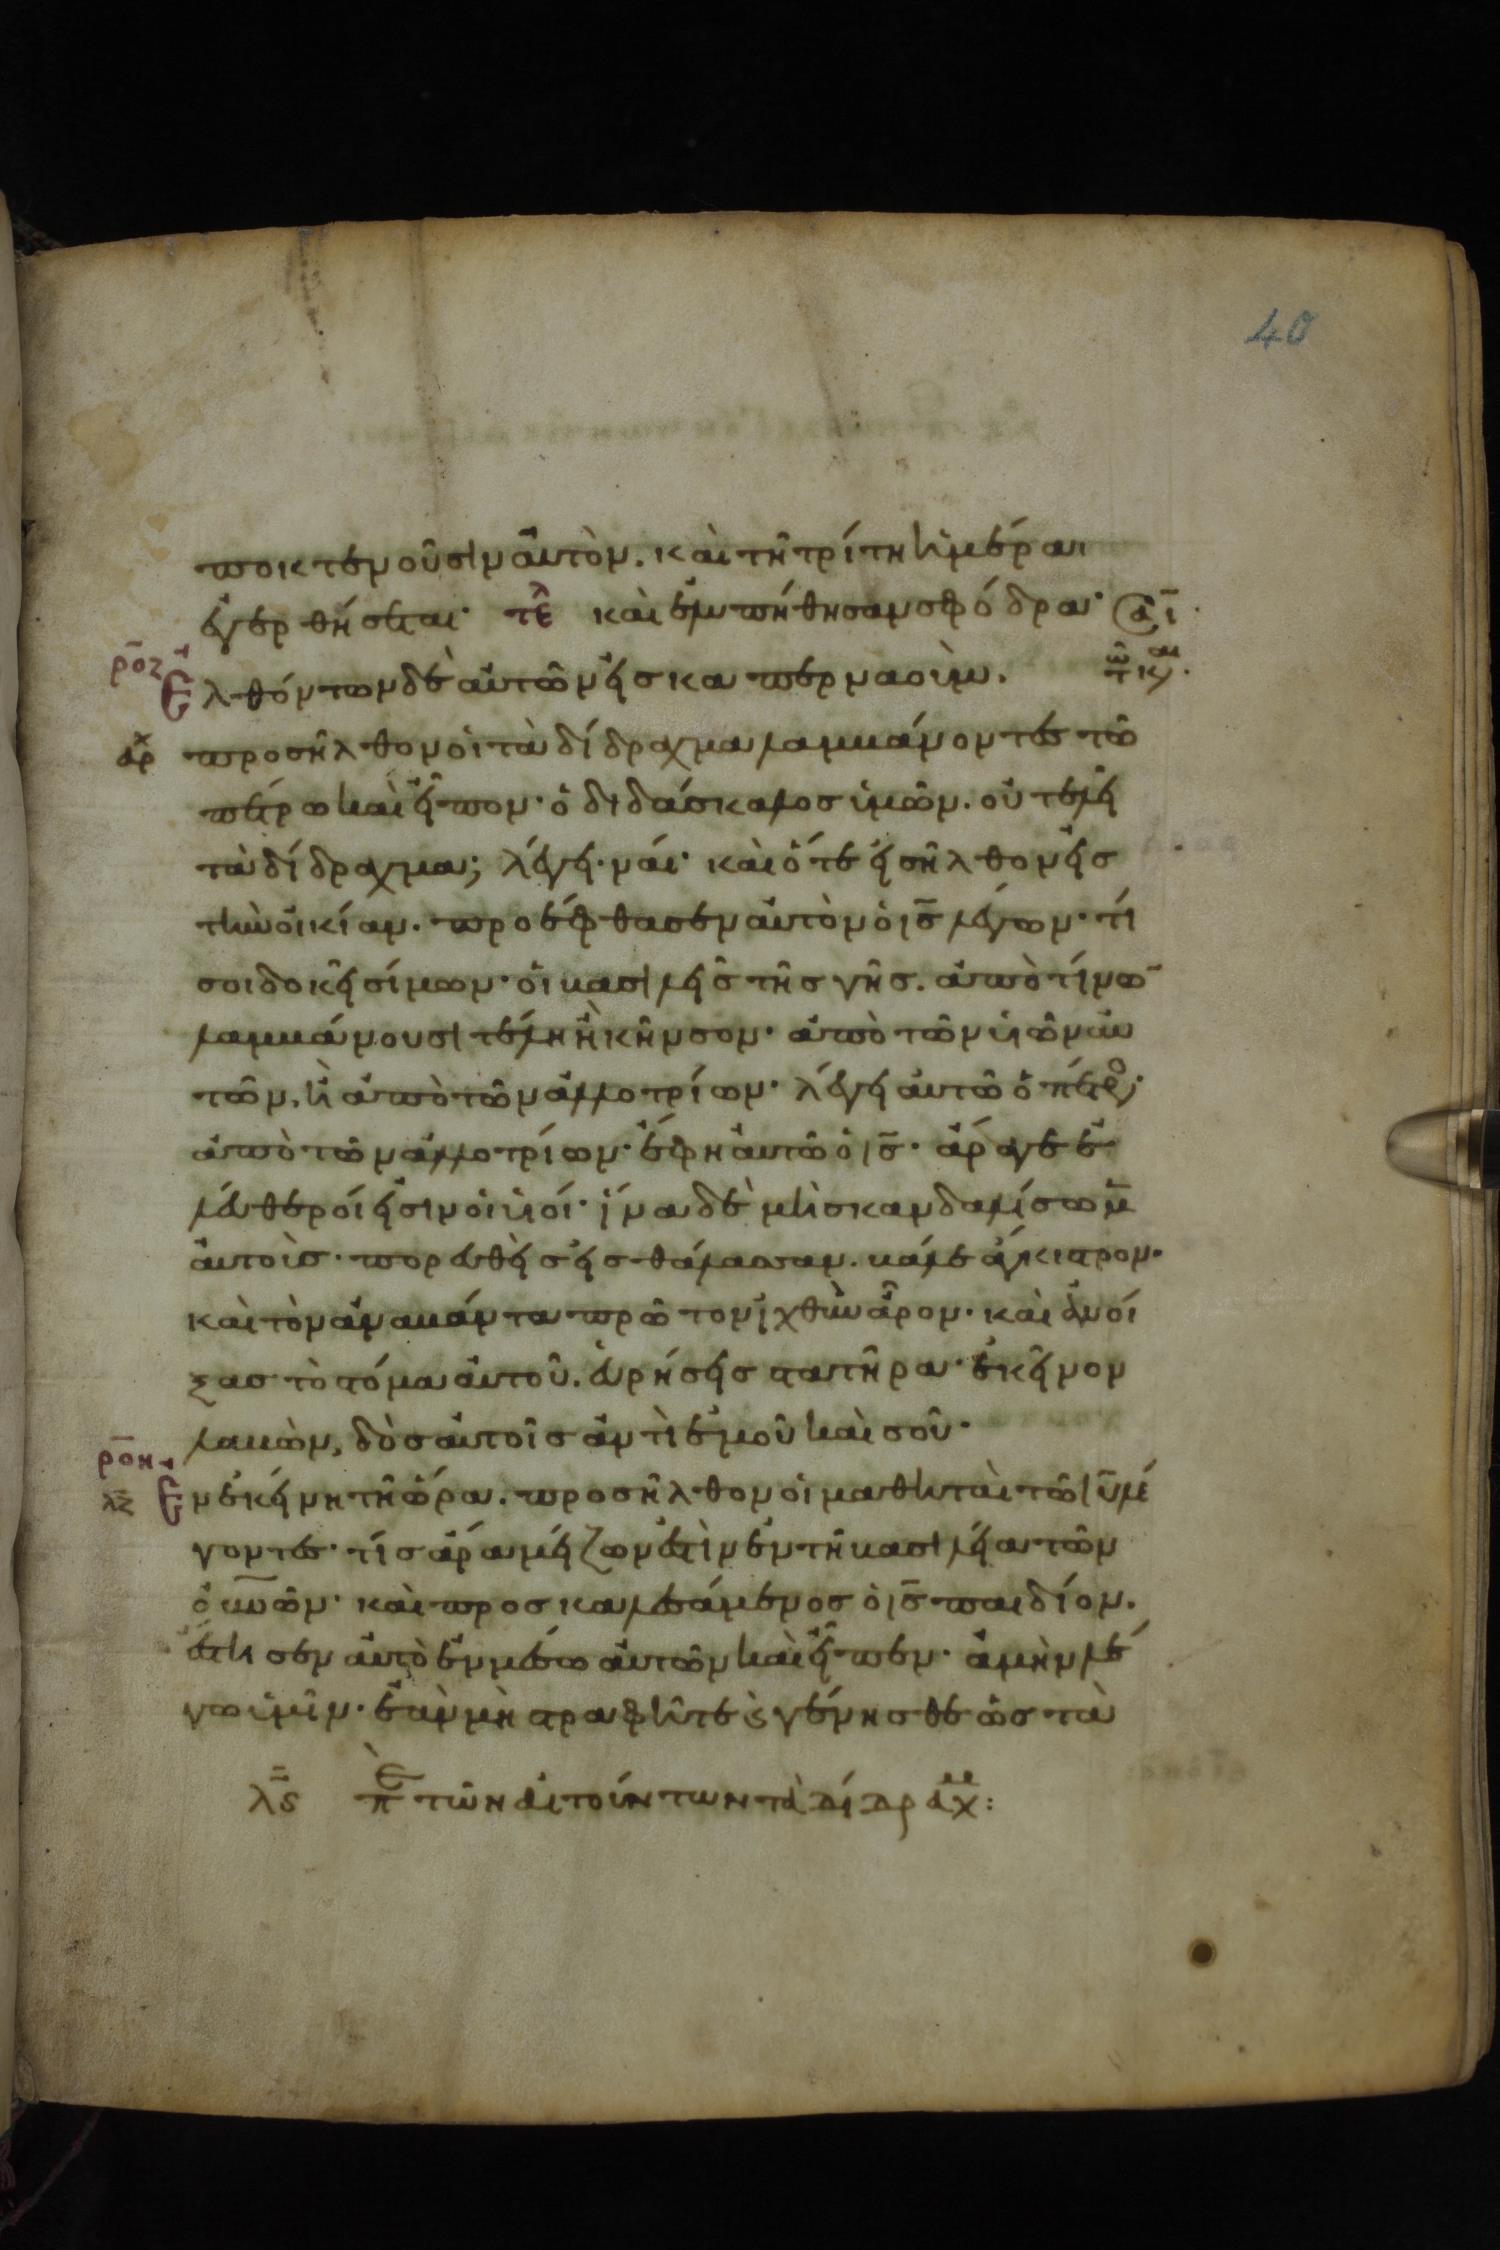 40
ποκτενοῦσιν αὐτὸν. καὶ τῆ τρίτη ἡμέρα
ἐγερθήσεται· τε^λ καὶ ἐλυπήθησαν σφόδρα·
ρο̄ζ Ἐλθόντων δὲ αὐτῶν εἰς καπερναοὺμ.
αρ^χ προσῆλθον οἱ τὰ δίδραχμα λαμβάνοντες τῶ
πέτρω καὶ εἶπον· ὁ διδάσκαλος ὑμῶν. οὐ τελεῖ
τὰ δίδραχμα; λέγει· ναί· καὶ ὅτε εἰσῆλθον εἰς
τὴν οἰκίαν. προέφθασεν αὐτὸν ὁ ις̄ λέγων· τί
σοι δοκεῖ σίμων· οἱ βασιλεῖς τῆς γῆς. ἀπὸ τίνω̄
λαμβάνουσι τέλη ἢ κῆνσον· ἀπὸ τῶν υἱῶν αὐ
τῶν, ἢ ἀπὸ τῶν ἀλλοτρίων· λέγει αὐτῶ ὁ πέτρο·
ἀπὸ τῶν ἀλλοτρίων· ἔφη αὐτῶ ὁ ις̄· ἄρα γε ἐ
λεύθεροί εἰσιν οἱ υἱοί· ἵνα δὲ μὴ σκανδαλίσωμ̄
αὐτοὺς· πορευθεὶς εἰς θάλασσαν. βάλε ἄγκιστρον·
καὶ τὸν ἀναβάντα πρῶτον ἰχθὺν ἆρον· καὶ ἀνοί
ξας τὸ στόμα αὐτοῦ. εὑρήσεις στατῆρα· ἐκεῖνον
λαβὼν, δὸς αὐτοῖς ἀντὶ ἐμοῦ καὶ σοῦ·
ρο̄η λζ̄ Ἐν ἐκείνη τῆ ὥρα. προσῆλθον οἱ μαθηταὶ τῶ ιῡ λέ
γοντες· τίς ἄρα μείζων ἐστὶν ἐν τῆ βασιλεία τῶν
οὐνῶν· καὶ προσκαλεσάμενος ὁ ις̄ παιδίον.
ἔστησεν αὐτὸ ἐν μέσω αὐτῶν καὶ εἶπεν· ἀμὴν λέ
γω ὑμῖν· ἐὰν μὴ στραφῆτε ϗ γένησθε ὡς τὰ
λς̄ πε τῶν αἰτούντων τὰ δίδραχ: